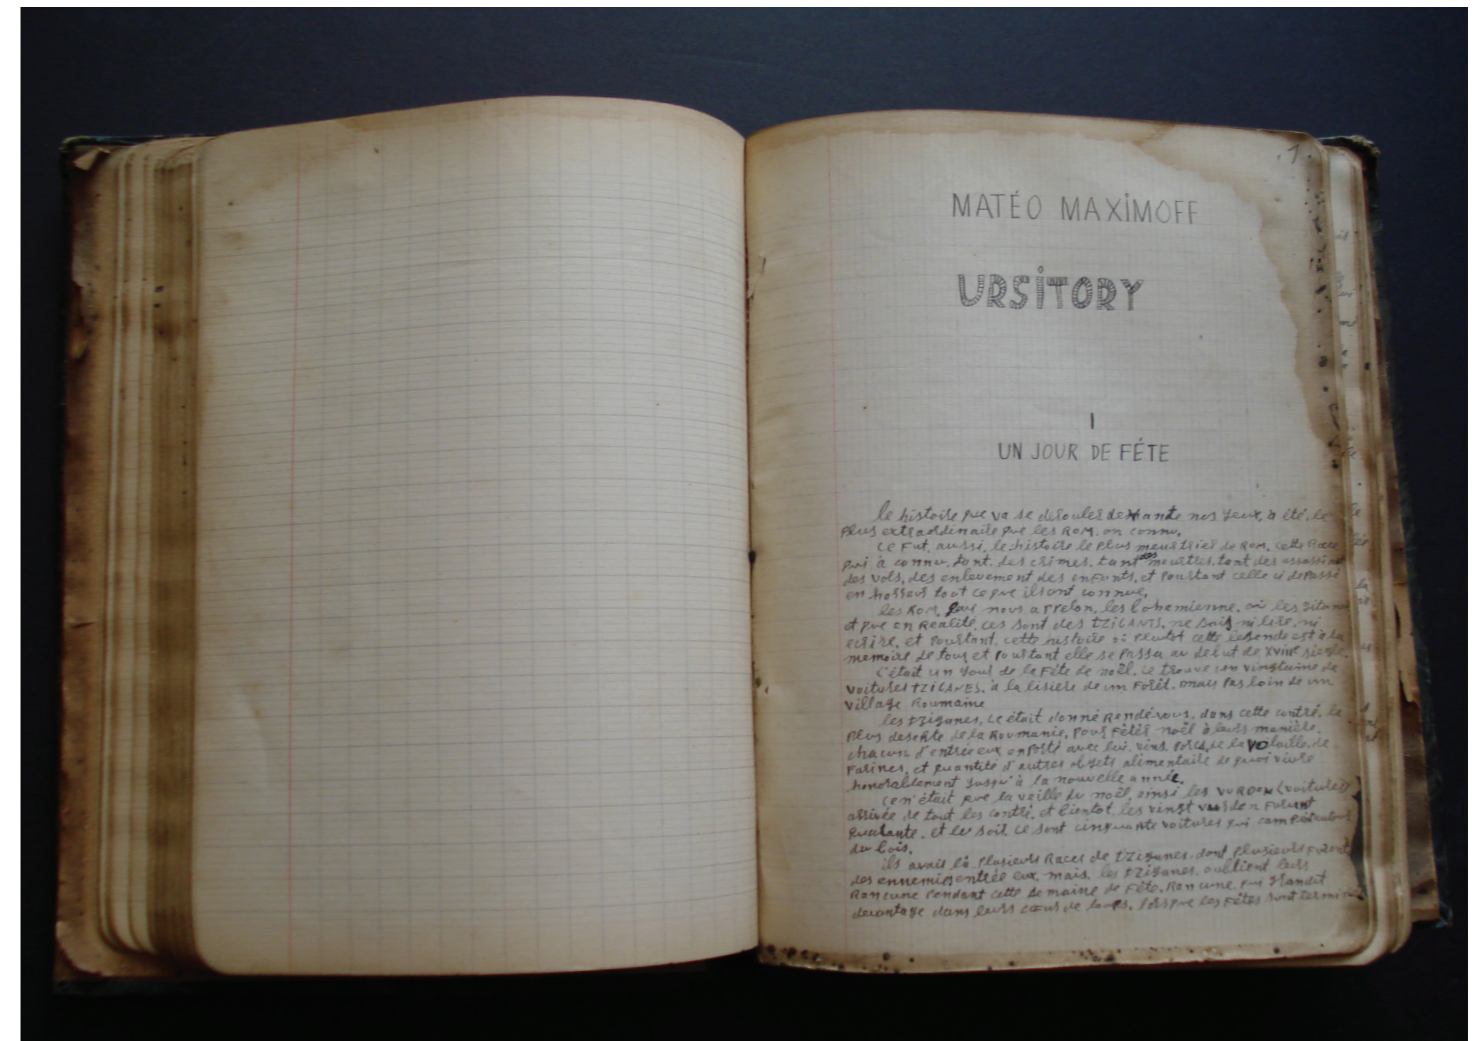 .1.
MATÉO MAXIMOFF
URSITORY
I
UN JOUR DE FÉTE
le histoire que va se dérouler devante nos yeux, à été, le
plus extraordinaire que les ROM, on connu.
ce fut, aussi, le histoire le plus meurtrier de ROM, cette Race
qui à connu, tant, des crimes, tant des meurtres, tant des
des vols, des enlevement des enfants, et pourtant celle ci depasse
en horreur tout ce que ils ont connue.
les ROM, que nous appelon, les bohamienne, où les
et que en Realité, ces sont des TZIGANES, ne sais ni lire, ni
ecrire, et pourtant, cette histoire où plutôt cette legende est à la
memoire de tous, et pourtant elle se passa, au debut de XVIIIe siecle.
C'était un jour de le Féte de noël, ce trouve un vingtaine de
voitures TZIGANES, à la lisiere de un forêt, mais pas loin de un
village Roumaine
les tziganes, ce était donné Rendé-vous, dans cette contré, le
plus deserte de la Roumanie, pour fétér noël à leurs manière,
chacun d'entrée eux, emporté avec lui, vins, porcs, de la volaille, de
farines, et quantité d'autres objets alimentaire de quoi vivre
honorablement jusqu'à la nouvelle année.
Cen'était que la veille du noël, ainsi les VURDON (voitures)
arrivée de tout les contré, et bientot, les vingt vurdon furent
quarante, et le soir, ce sont cinquante voitures qui
du bois.
ils avait là plusieurs Races de tziganes, dont plusieurs
des ennemis entrée eux, mais, les tziganes, oublient leurs
Rancune pendant cette semaine de féte, Rancune, qui grandit
devantage dans leurs cœurs de loups, lorsque les fétes sont